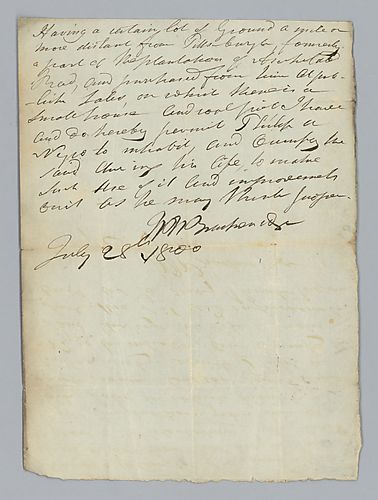 Having a certain lot of Ground a mile or
more distant from Pittsburgh, formerly
a part of the plantation of Archibald
Read, and purchased from him at pub-
lick Sales, on which there is a
small house and coal pit I have
and do hereby permit Philip a
Negro to inhabit, and occupy the
said during his life to make
such use of it and improvements
on it as he may think proper.
H H Brackenridge
July 28th 1800